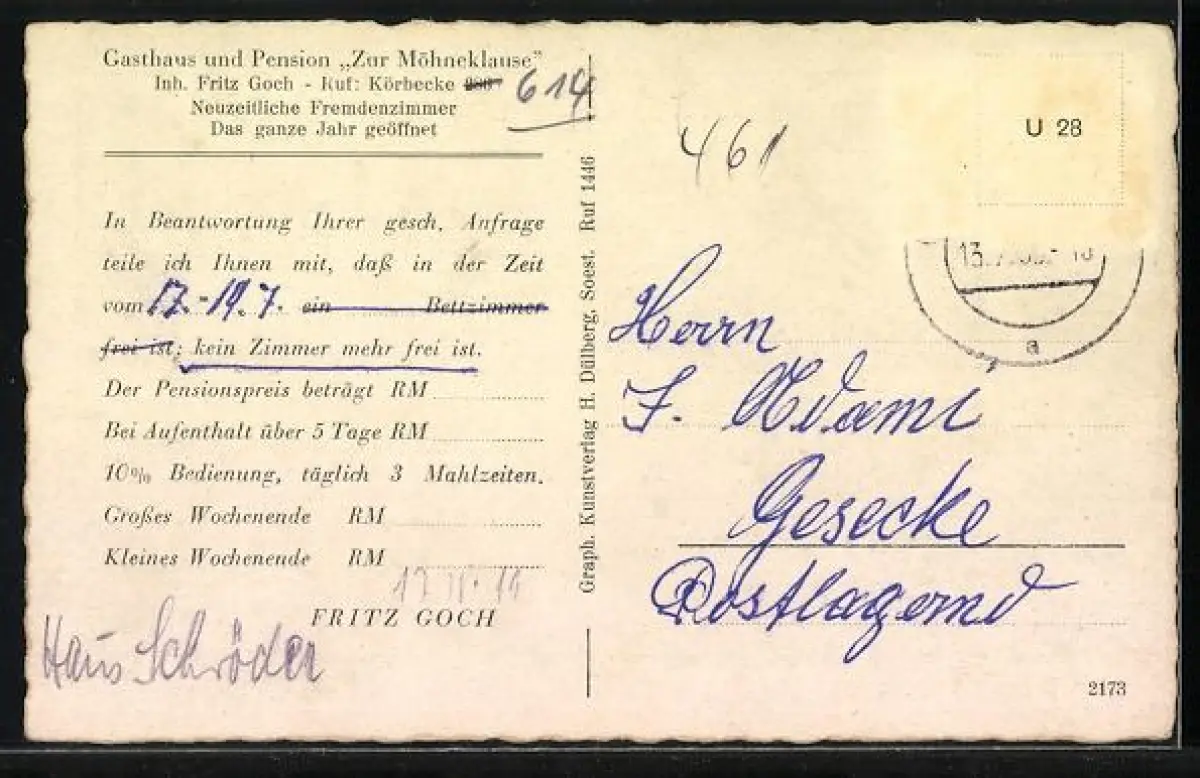 Gasthaus und Pension „Zur Möhneklause"
Inh. Fritz Goch - Ruf: Körbecke 614
Neuzeitliche Fremdenzimmer
Das ganze Jahr geöffnet
In Beantwortung Ihrer gesch. Anfrage
teile ich Ihnen mit, daß in der Zeit
vom 17.-19.7. ein Bettzimmer
frei ist; kein Zimmer mehr frei ist.
Der Pensionspreis beträgt RM
Bei Aufenthalt über 5 Tage RM
10% Bedienung, täglich 3 Mahlzeiten.
Großes Wochenende RM
Kleines Wochenende RM
FRITZ GOCH
Haus Schröder
Graph. Kunstverlag H. Dülberg, Soest. Ruf 1446
461
U 28
a
Herrn
F. Adami
Gesecke
Postlagernd
2173